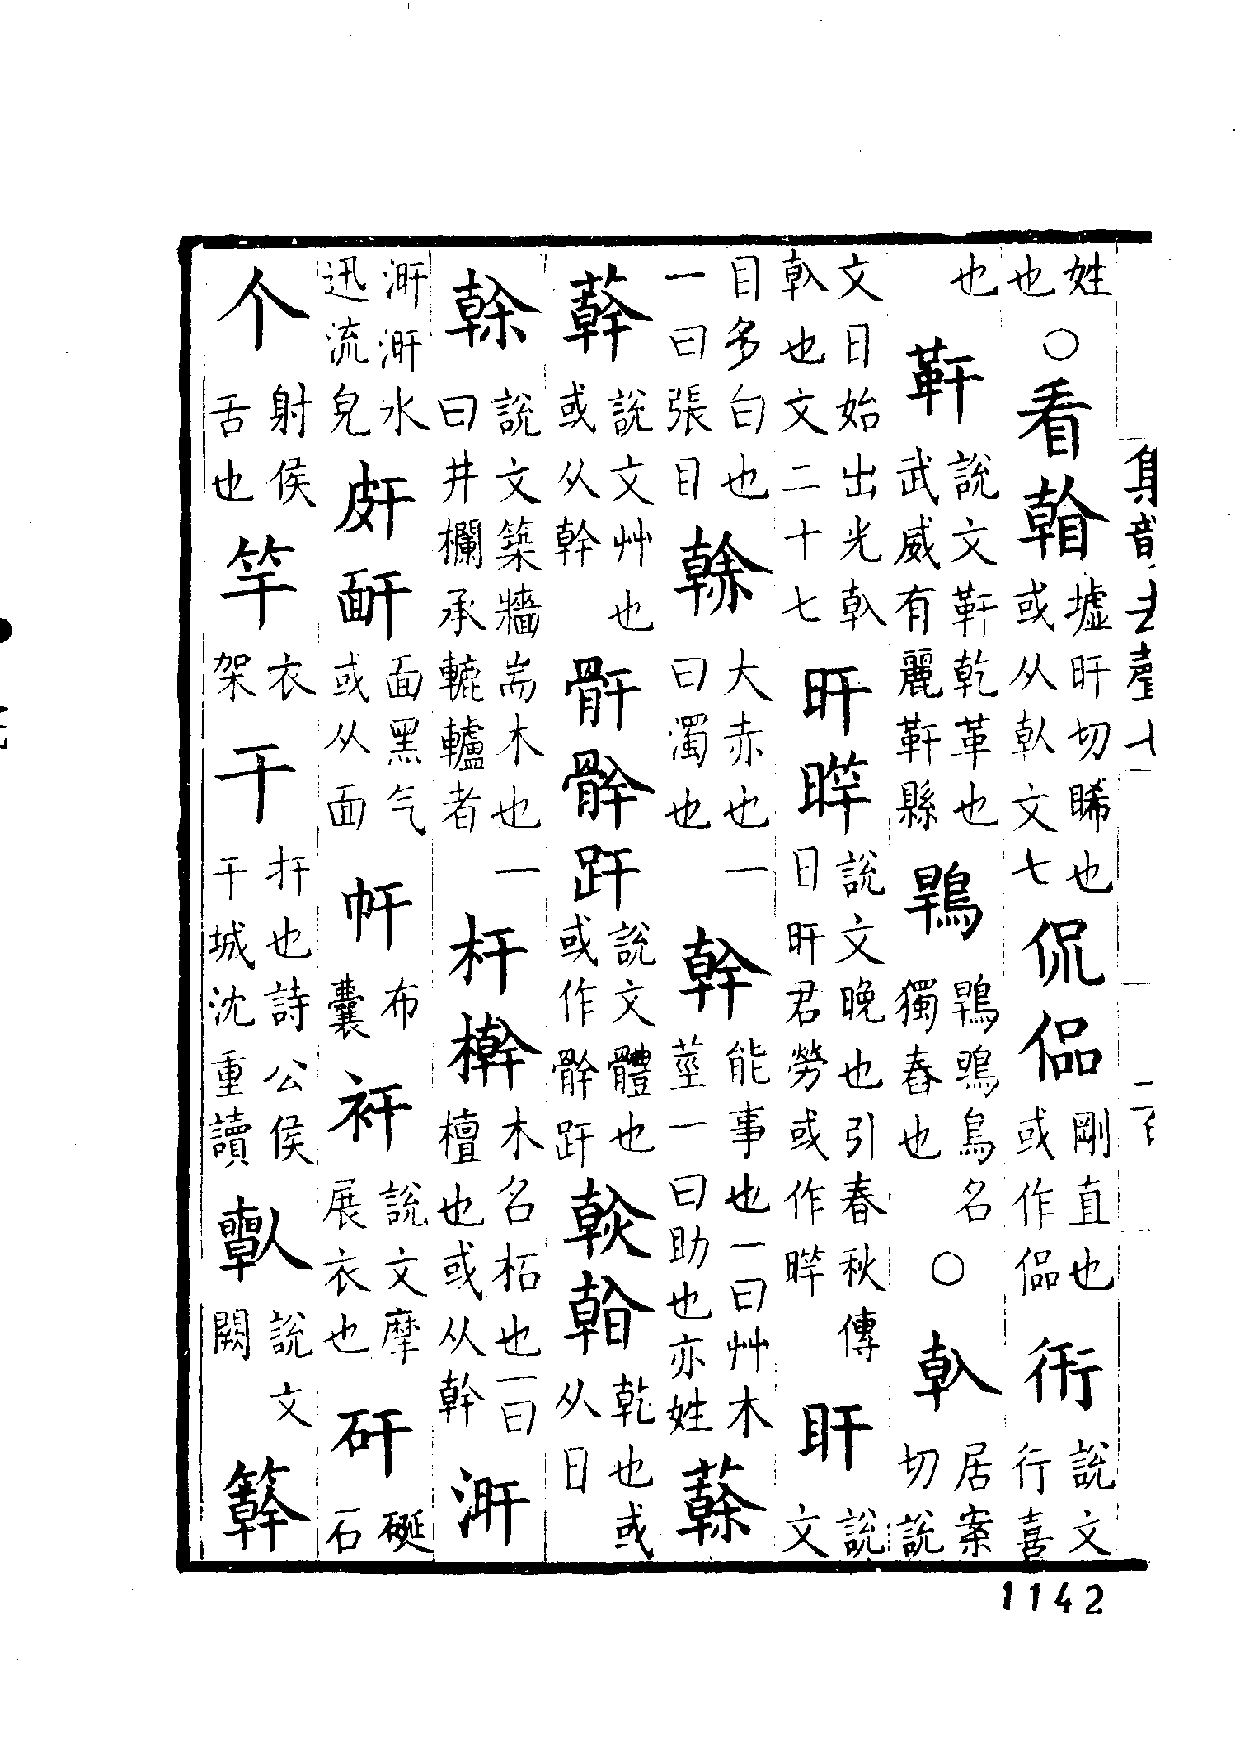 姓也○看𩹴墟旰切睎也或从倝文七侃偘剛直也或作偘衎說文行喜
也靬說文靬乾革也武威有麗靬縣鶾鶾鴠鳥名獨舂也○倝居案切說
文日始出光倝倝也文二十七旰說文晚也引春秋傳日旰君勞或作盰說文
目多白也一曰張目大赤也一曰濁也幹能事也一曰艸木莖一曰助也亦姓
說文艸也或从幹骭說文體也或作乾也或从日
榦說文築牆耑木也一曰井欄承轆轤者杆檊木名柘也一曰檀也或从幹涆
涆涆水迅流皃皯面黑气或从面布囊衦說文摩展衣也矸硟石
个射侯舌也竿衣架干扞也詩公侯干城沈重讀說文闕簳
集韻去聲七
1142